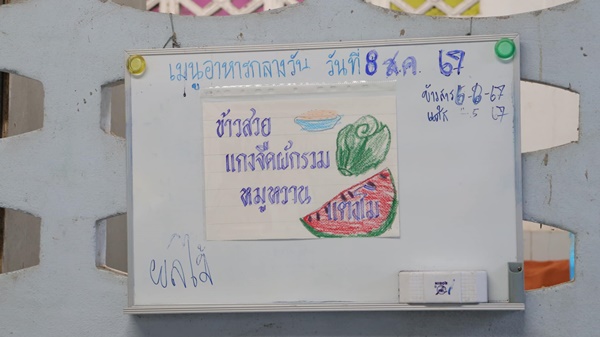 เมนูอาหารกลางวัน วันที่ 8 ส.ค. ๖๗
ข้าวสวย
แกงจืดผักรวม
หมูหวาน
แตงโม
ข้าวสาร
ผลไม้